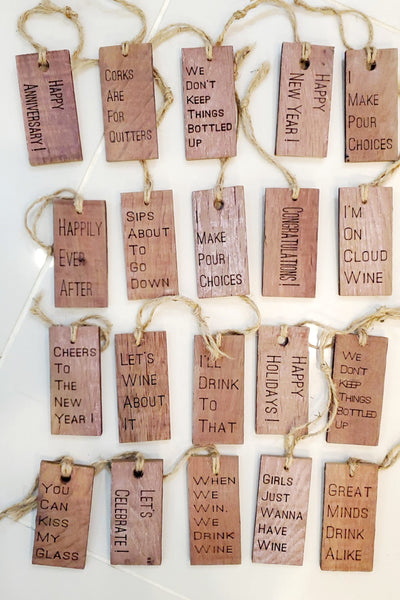 Happy
Anniversary!
Corks
Are
For
Quitters
We
Don't
Keep
Things
Bottled
Up
Happy
New Year!
I
Make
Pour
Choices
Happily
Ever
After
Sips
About
To
Go
Down
Make
Pour
Choices
Congratulations!
I'm
On
Cloud
Wine
Cheers
To
The
New
Year!
Let's
Wine
About
It
I'll
Drink
To
That
Happy
Holidays!
We
Don't
Keep
Things
Bottled
Up
You
Can
Kiss
My
Glass
Let's
Celebrate!
When
We
Win,
We
Drink
Wine
Girls
Just
Wanna
Have
Wine
Great
Minds
Drink
Alike